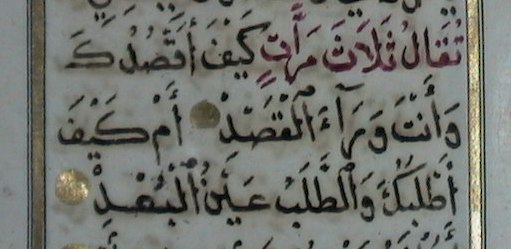 تُقَالُ ثَلَاثَ مَرَّاتٍ كَيْفَ أَقْصُدُكَ
وَأَنْتَ وَرَآءَ الْقَصْدِ أَمْ كَيْفَ
أَطْلُبُكَ وَالطَّلَبُ عَيْنُ الْبُعْدِ